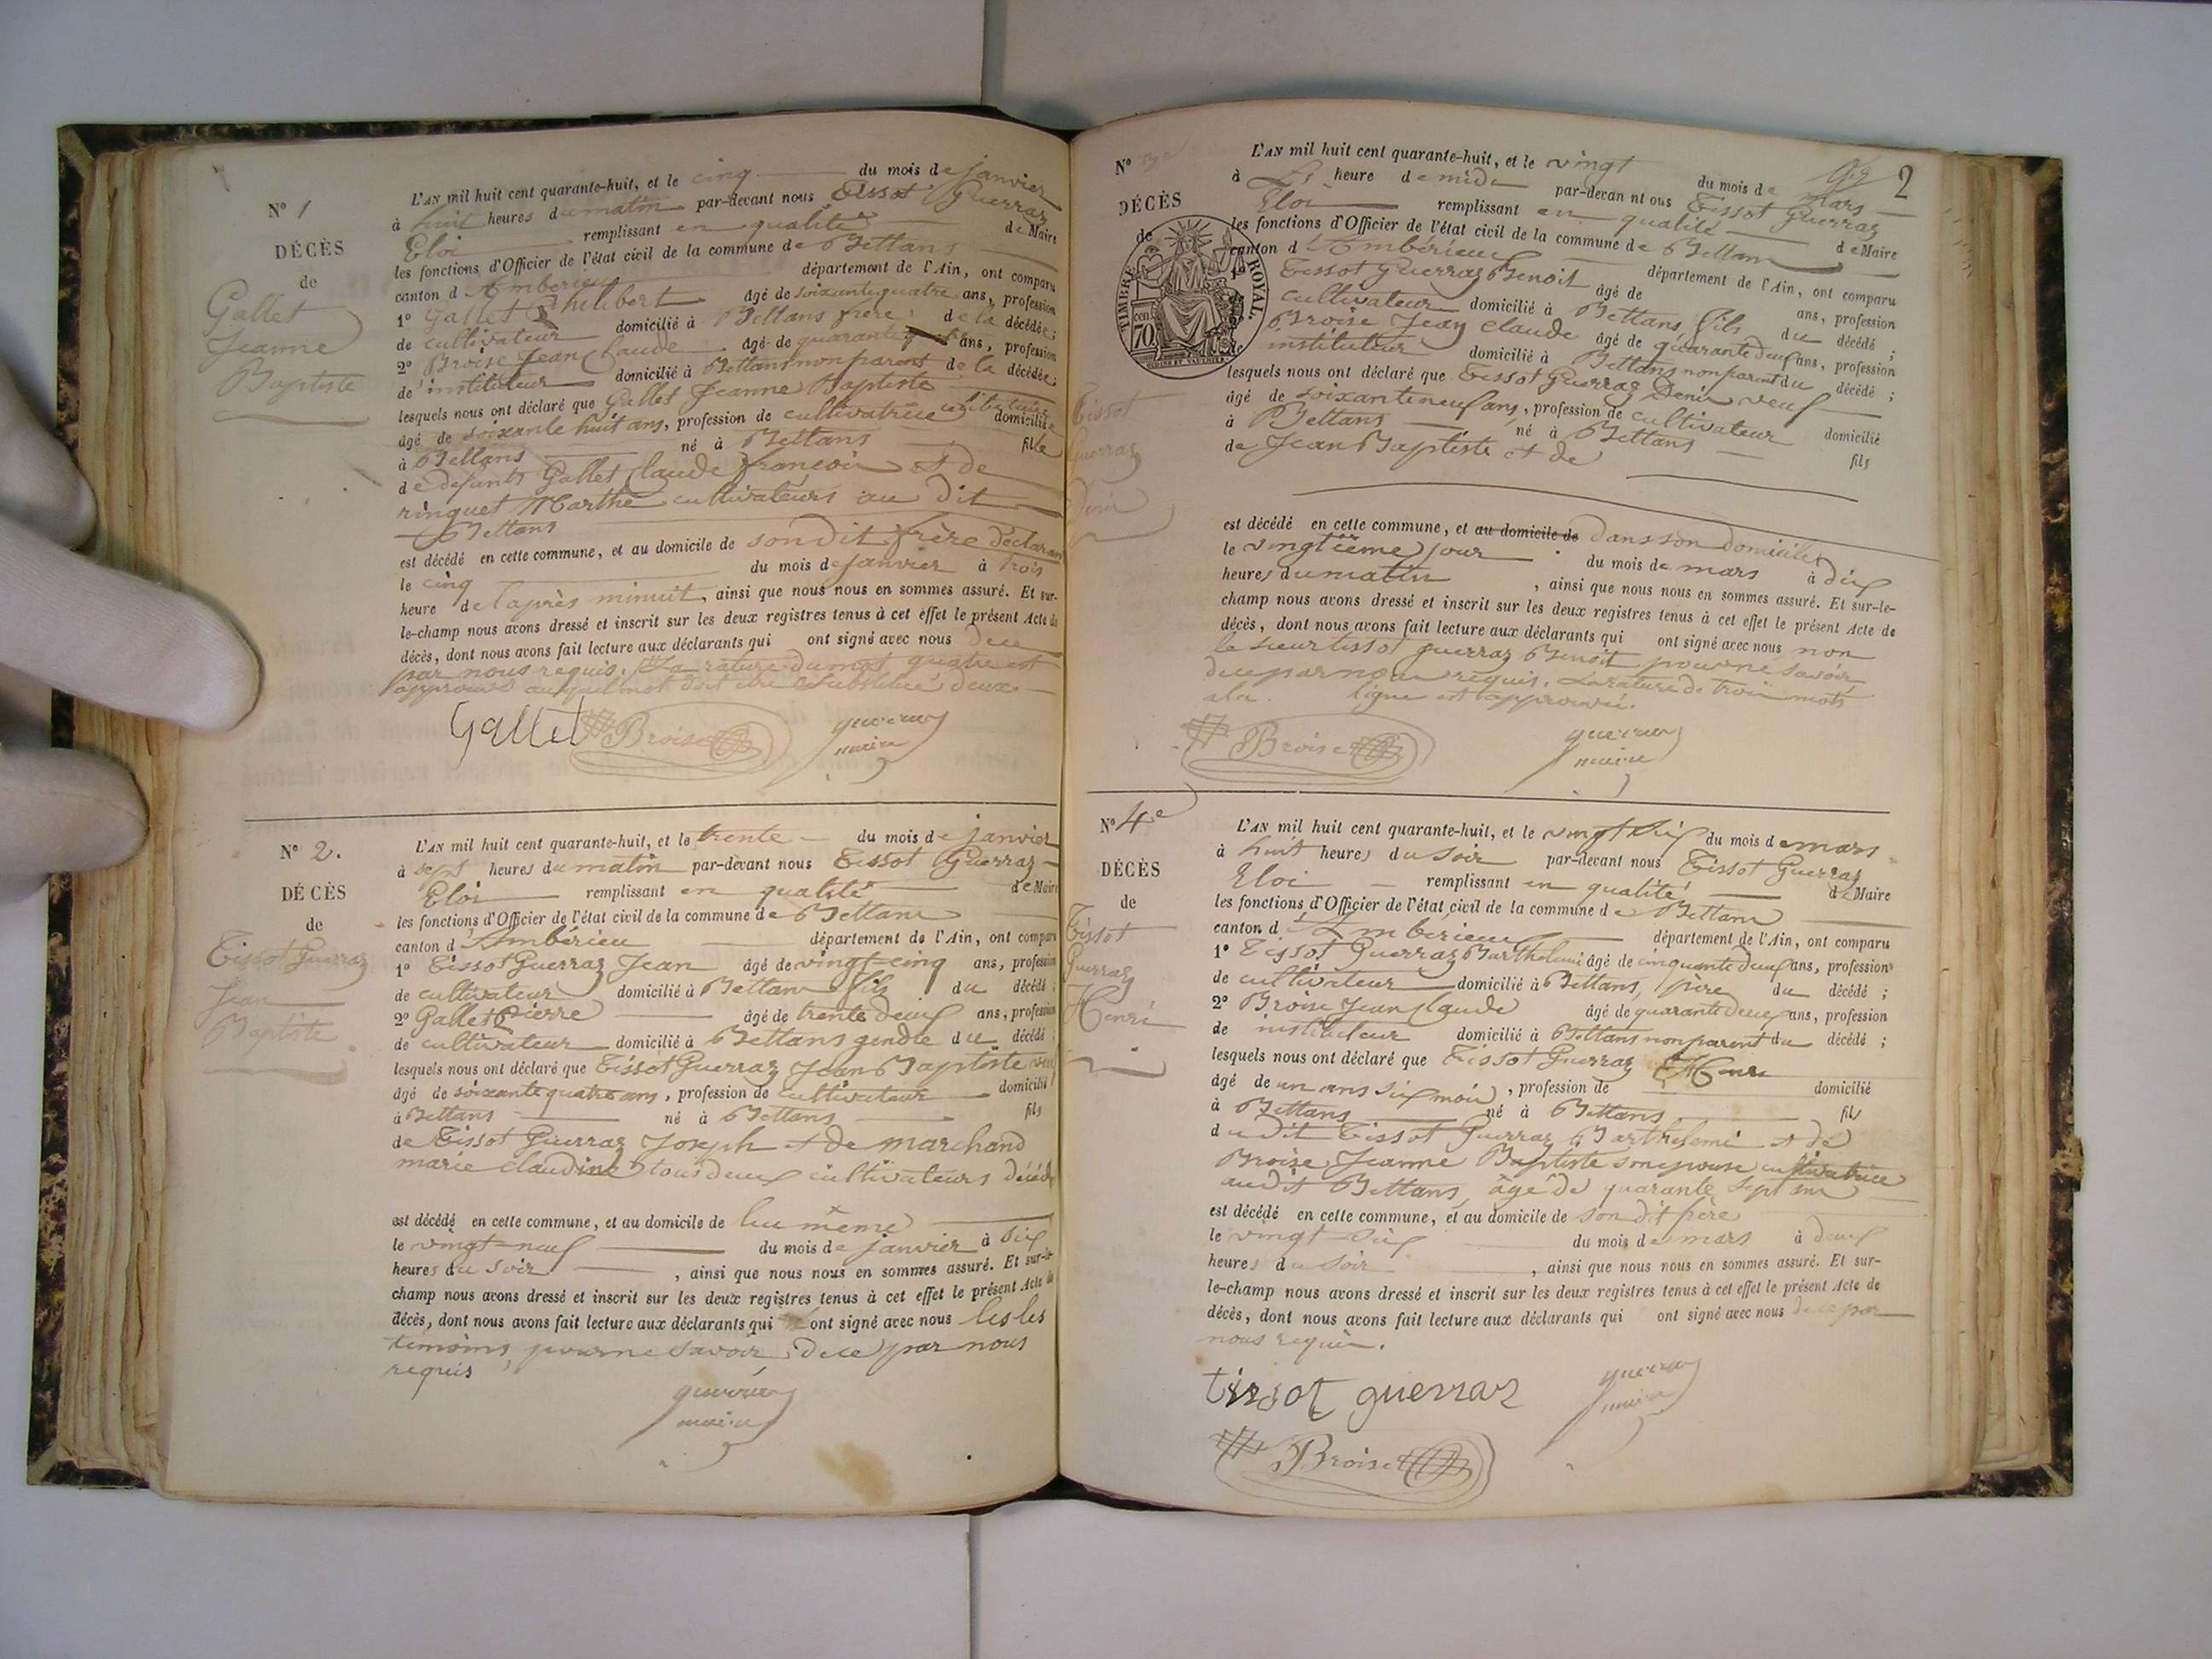 N° 1
DÉCÈS
de
Gallet
Jeanne
Baptiste
L'AN mil huit cent quarante-huit, et le cinq du mois de janvier
à huit heures du matin par-devant nous Tissot Guerraz
Eloi remplissant en qualité de Maire
les fonctions d'Officier de l'état civil de la commune de Bettans
canton d'Ambérieu département de l'Ain, ont comparu
1° Gallet Philibert âgé de soixante quatre ans, profession
de cultivateur domicilié à Bettans frère de la décédée;
2° Broise Jean Claude âgé de quarante ans, profession
de instituteur domicilié à Bettans non parent de la décédée;
lesquels nous ont déclaré que Gallet Jeanne Baptiste célibataire
âgé de soixante huit ans, profession de cultivatrice domiciliée
à Bettans né à Bettans fille
de défunts Gallet Claude françois et de
rinquet Marthe cultivateurs au dit
Bettans
est décédé en cette commune, et au domicile de son dit frère déclarant
le cinq du mois de janvier à trois
heure de l'après minuit, ainsi que nous nous en sommes assuré. Et sur-
le-champ nous avons dressé et inscrit sur les deux registres tenus à cet effet le présent Acte de
décès, dont nous avons fait lecture aux déclarants qui ont signé avec nous de ce
par nous requis. La rature du mot quatre est
approuvé auquel mot doit être substitué deux
Gallet Broise guerraz
maire
N° 2.
DÉCÈS
de
Tissot Guerraz
Jean
Baptiste
L'AN mil huit cent quarante-huit, et le trente du mois de janvier
à sept heures du matin par-devant nous Tissot Guerraz
Eloi remplissant en qualité de Maire
les fonctions d'Officier de l'état civil de la commune de Bettans
canton d'Ambérieu département de l'Ain, ont comparu
1° Tissot Guerraz Jean âgé de vingt-cinq ans, profession
de cultivateur domicilié à Bettans fils du décédé;
2° Gallet Pierre âgé de trente deux ans, profession
de cultivateur domicilié à Bettans gendre du décédé;
lesquels nous ont déclaré que Tissot Guerraz Jean Baptiste veuf
âgé de soixante quatre ans, profession de cultivateur domicilié
à Bettans né à Bettans fils
de Tissot Guerraz Joseph et de marchand
marie claudine tous deux cultivateurs décédés
est décédé en cette commune, et au domicile de lui même
le vingt-neuf du mois de janvier à dix
heures du soir, ainsi que nous nous en sommes assuré. Et sur-le-
champ nous avons dressé et inscrit sur les deux registres tenus à cet effet le présent Acte de
décès, dont nous avons fait lecture aux déclarants qui ont signé avec nous les les
témoins pour ne savoir de ce par nous
requis
guerraz
maire
2
N° 3e
DÉCÈS
de
TIMBRE ROYAL
70 cen
Tissot
Guerraz
Denis
L'AN mil huit cent quarante-huit, et le vingt du mois de mars
à heure de midi par-devant nous Tissot Guerraz
Eloi remplissant en qualité de Maire
les fonctions d'Officier de l'état civil de la commune de Bettans
canton d'Ambérieu département de l'Ain, ont comparu
1° Tissot Guerraz Benoit âgé de ans, profession
cultivateur domicilié à Bettans, fils du décédé;
Broise Jean Claude âgé de quarante deux ans, profession
instituteur domicilié à Bettans non parent du décédé;
lesquels nous ont déclaré que Tissot Guerraz Denis veuf
âgé de soixante neuf ans, profession de cultivateur domicilié
à Bettans né à Bettans fils
de Jean Baptiste et de
est décédé en cette commune, et au domicile de dans son domicile
le vingtième jour du mois de mars à dix
heures du matin, ainsi que nous nous en sommes assuré. Et sur-le-
champ nous avons dressé et inscrit sur les deux registres tenus à cet effet le présent Acte de
décès, dont nous avons fait lecture aux déclarants qui ont signé avec nous non
le sieur tissot guerraz Benoit pour ne savoir
de ce par nous requis. La rature de trois mots
à la ligne est approuvée.
Broise guerraz
maire
N° 4e
DÉCÈS
de
Tissot
Guerraz
Henri
L'AN mil huit cent quarante-huit, et le vingt six du mois de mars
à huit heures du soir par-devant nous Tissot Guerraz
Eloi remplissant en qualité de Maire
les fonctions d'Officier de l'état civil de la commune de Bettans
canton d'Ambérieu département de l'Ain, ont comparu
1° Tissot Guerraz Barthelemi âgé de cinquante deux ans, profession
de cultivateur domicilié à Bettans, père du décédé;
2° Broise Jean Claude âgé de quarante deux ans, profession
de instituteur domicilié à Bettans non parent du décédé;
lesquels nous ont déclaré que Tissot Guerraz Henri
âgé de un ans six mois, profession de domicilié
à Bettans né à Bettans fils
du dit Tissot Guerraz Barthelemi et de
Broise Jeanne Baptiste son épouse cultivatrice
audit Bettans, âgé de quarante sept ans
est décédé en cette commune, et au domicile de son dit père
le vingt-six du mois de mars à deux
heures du soir, ainsi que nous nous en sommes assuré. Et sur-
le-champ nous avons dressé et inscrit sur les deux registres tenus à cet effet le présent Acte de
décès, dont nous avons fait lecture aux déclarants qui ont signé avec nous de ce par
nous requis.
tissot guerraz guerraz
maire
Broise